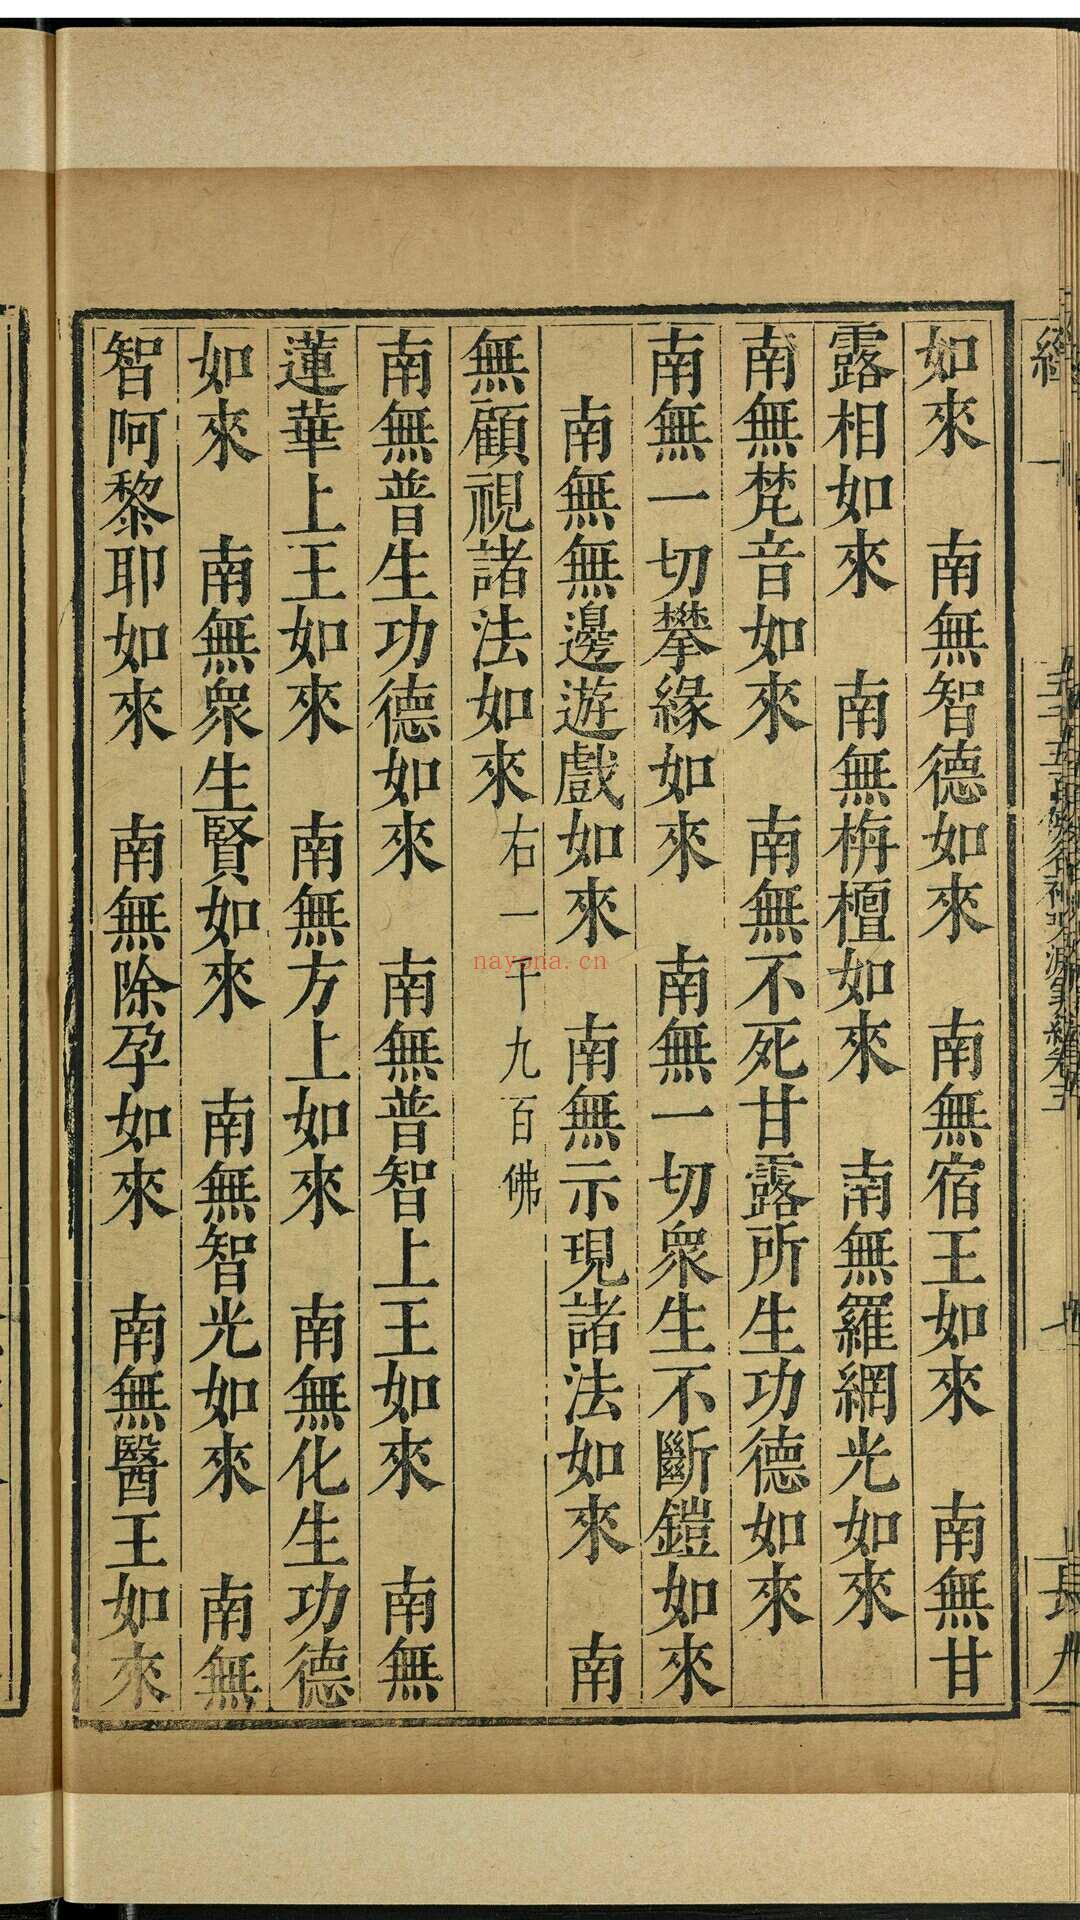 如來　南無智德如來　南無宿王如來　南無甘
露相如來　南無栴檀如來　南無羅網光如來
南無梵音如來　南無不死甘露所生功德如來
南無一切攀緣如來　南無一切眾生不斷鎧如來
南無無邊遊戲如來　南無示現諸法如來　南
無顧視諸法如來右一千九百佛
南無普生功德如來　南無普智上王如來　南無
蓮華上王如來　南無方上如來　南無化生功德
如來　南無眾生賢如來　南無智光如來　南無
智阿黎耶如來　南無除孕如來　南無醫王如來
nayona.cn